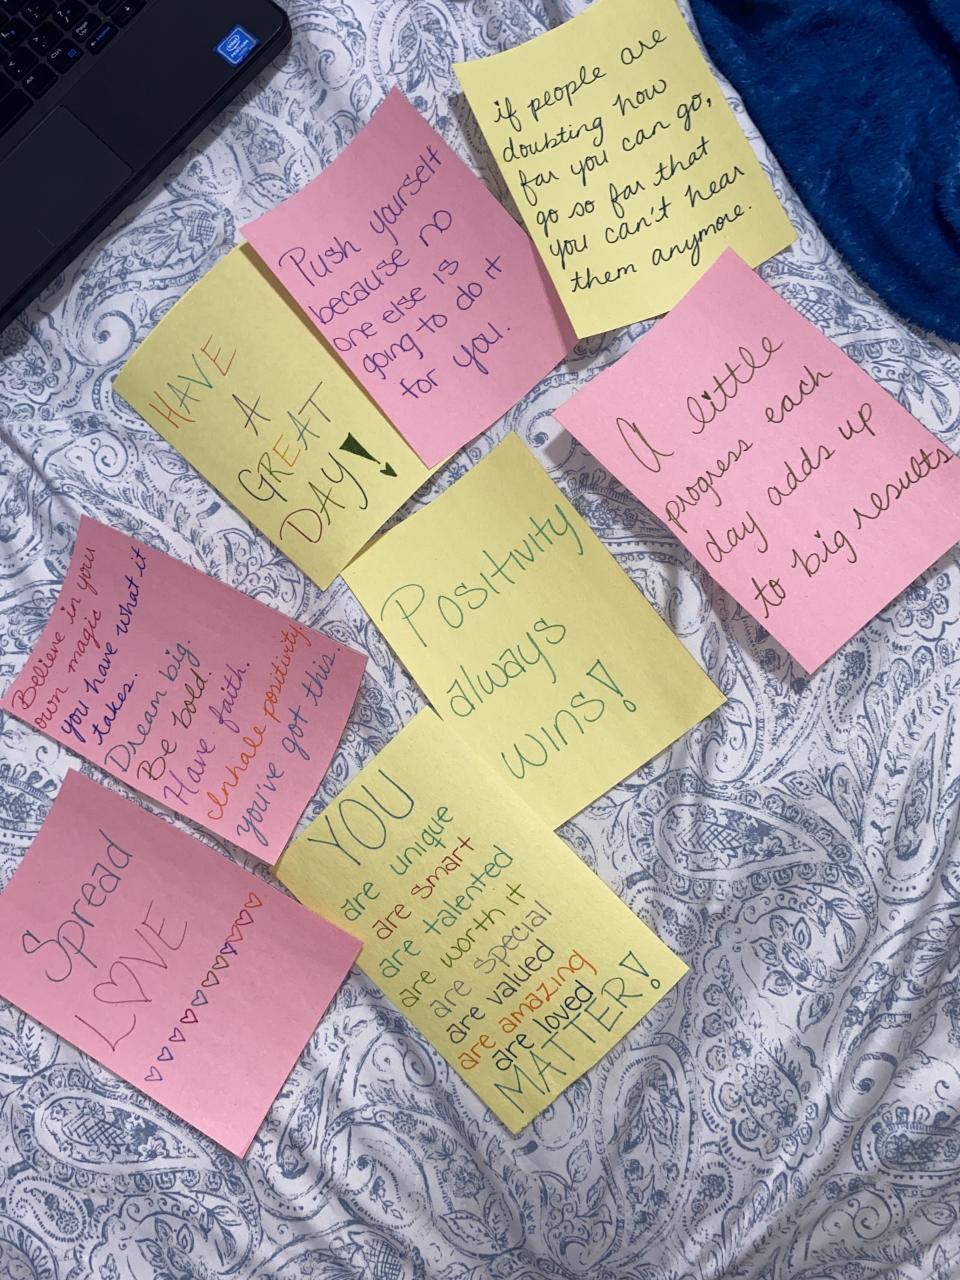 if people are
doubting how
far you can go,
go so far that
you can't hear
them anymore.
Push yourself
because no
one else is
going to do it
for you.
HAVE
A
GREAT
DAY!
A little
progress each
day adds up
to big results
Positivity
always
wins!
Believe in you
own magic
you have what it
takes.
Dream big.
Be bold.
Have faith.
Inhale positivity
you've got this.
YOU
are unique
are smart
are talented
are worth it
are special
are valued
are amazing
are loved
MATTER!
Spread
LOVE